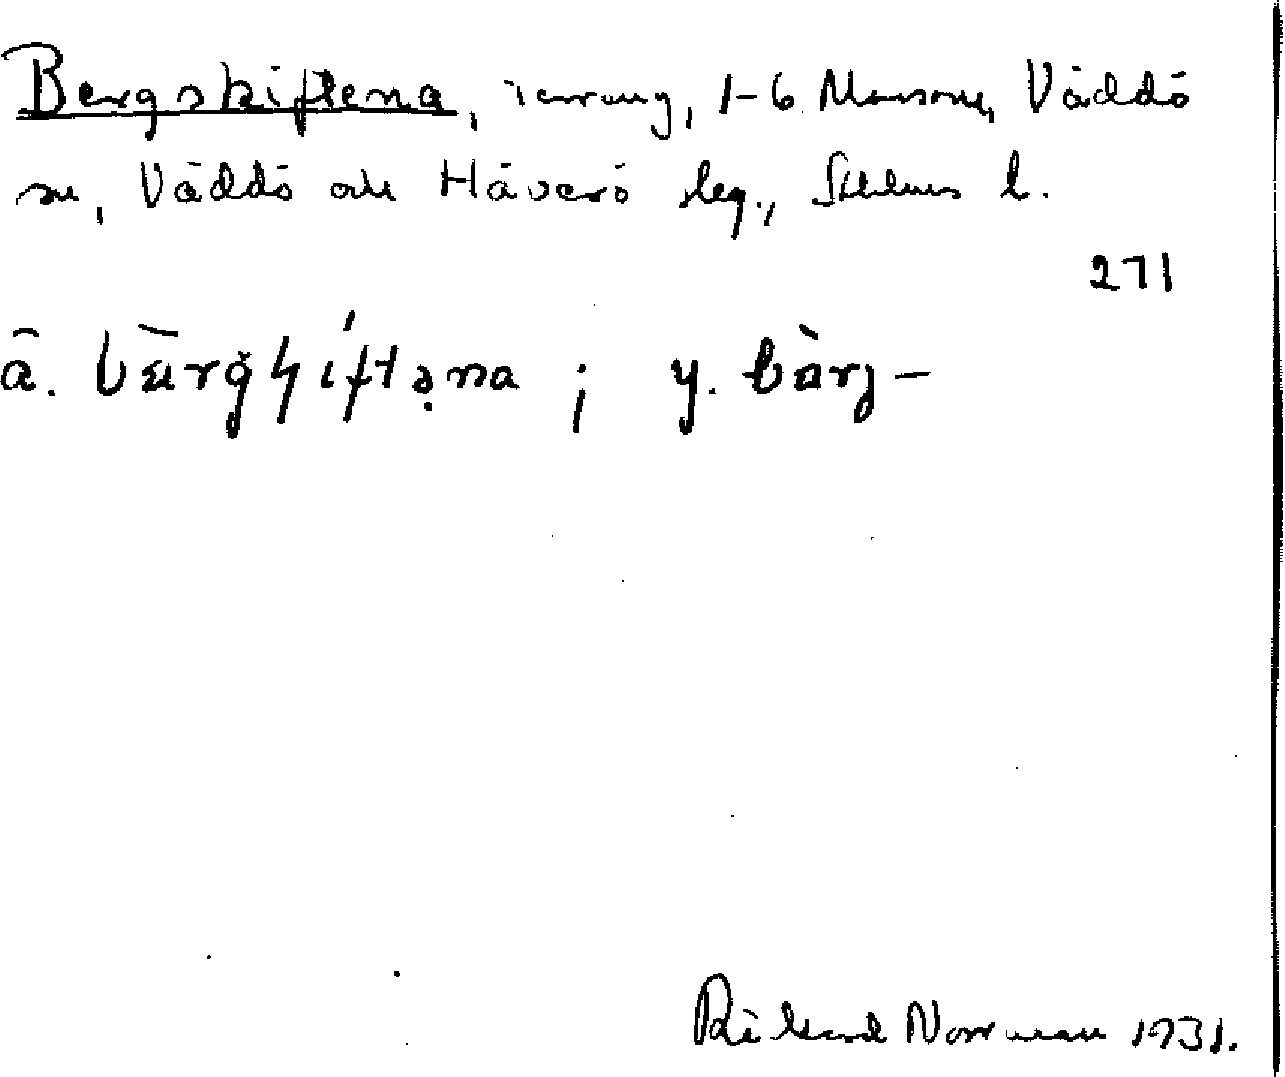 Bergskiftena, terräng, 1-6 Mansone, Väddö
sn, Väddö och Häverö skg., Sthlms l.
271
ä. bärgʃiftəna ; y. bàrj-
Rikard Norrman 1931.